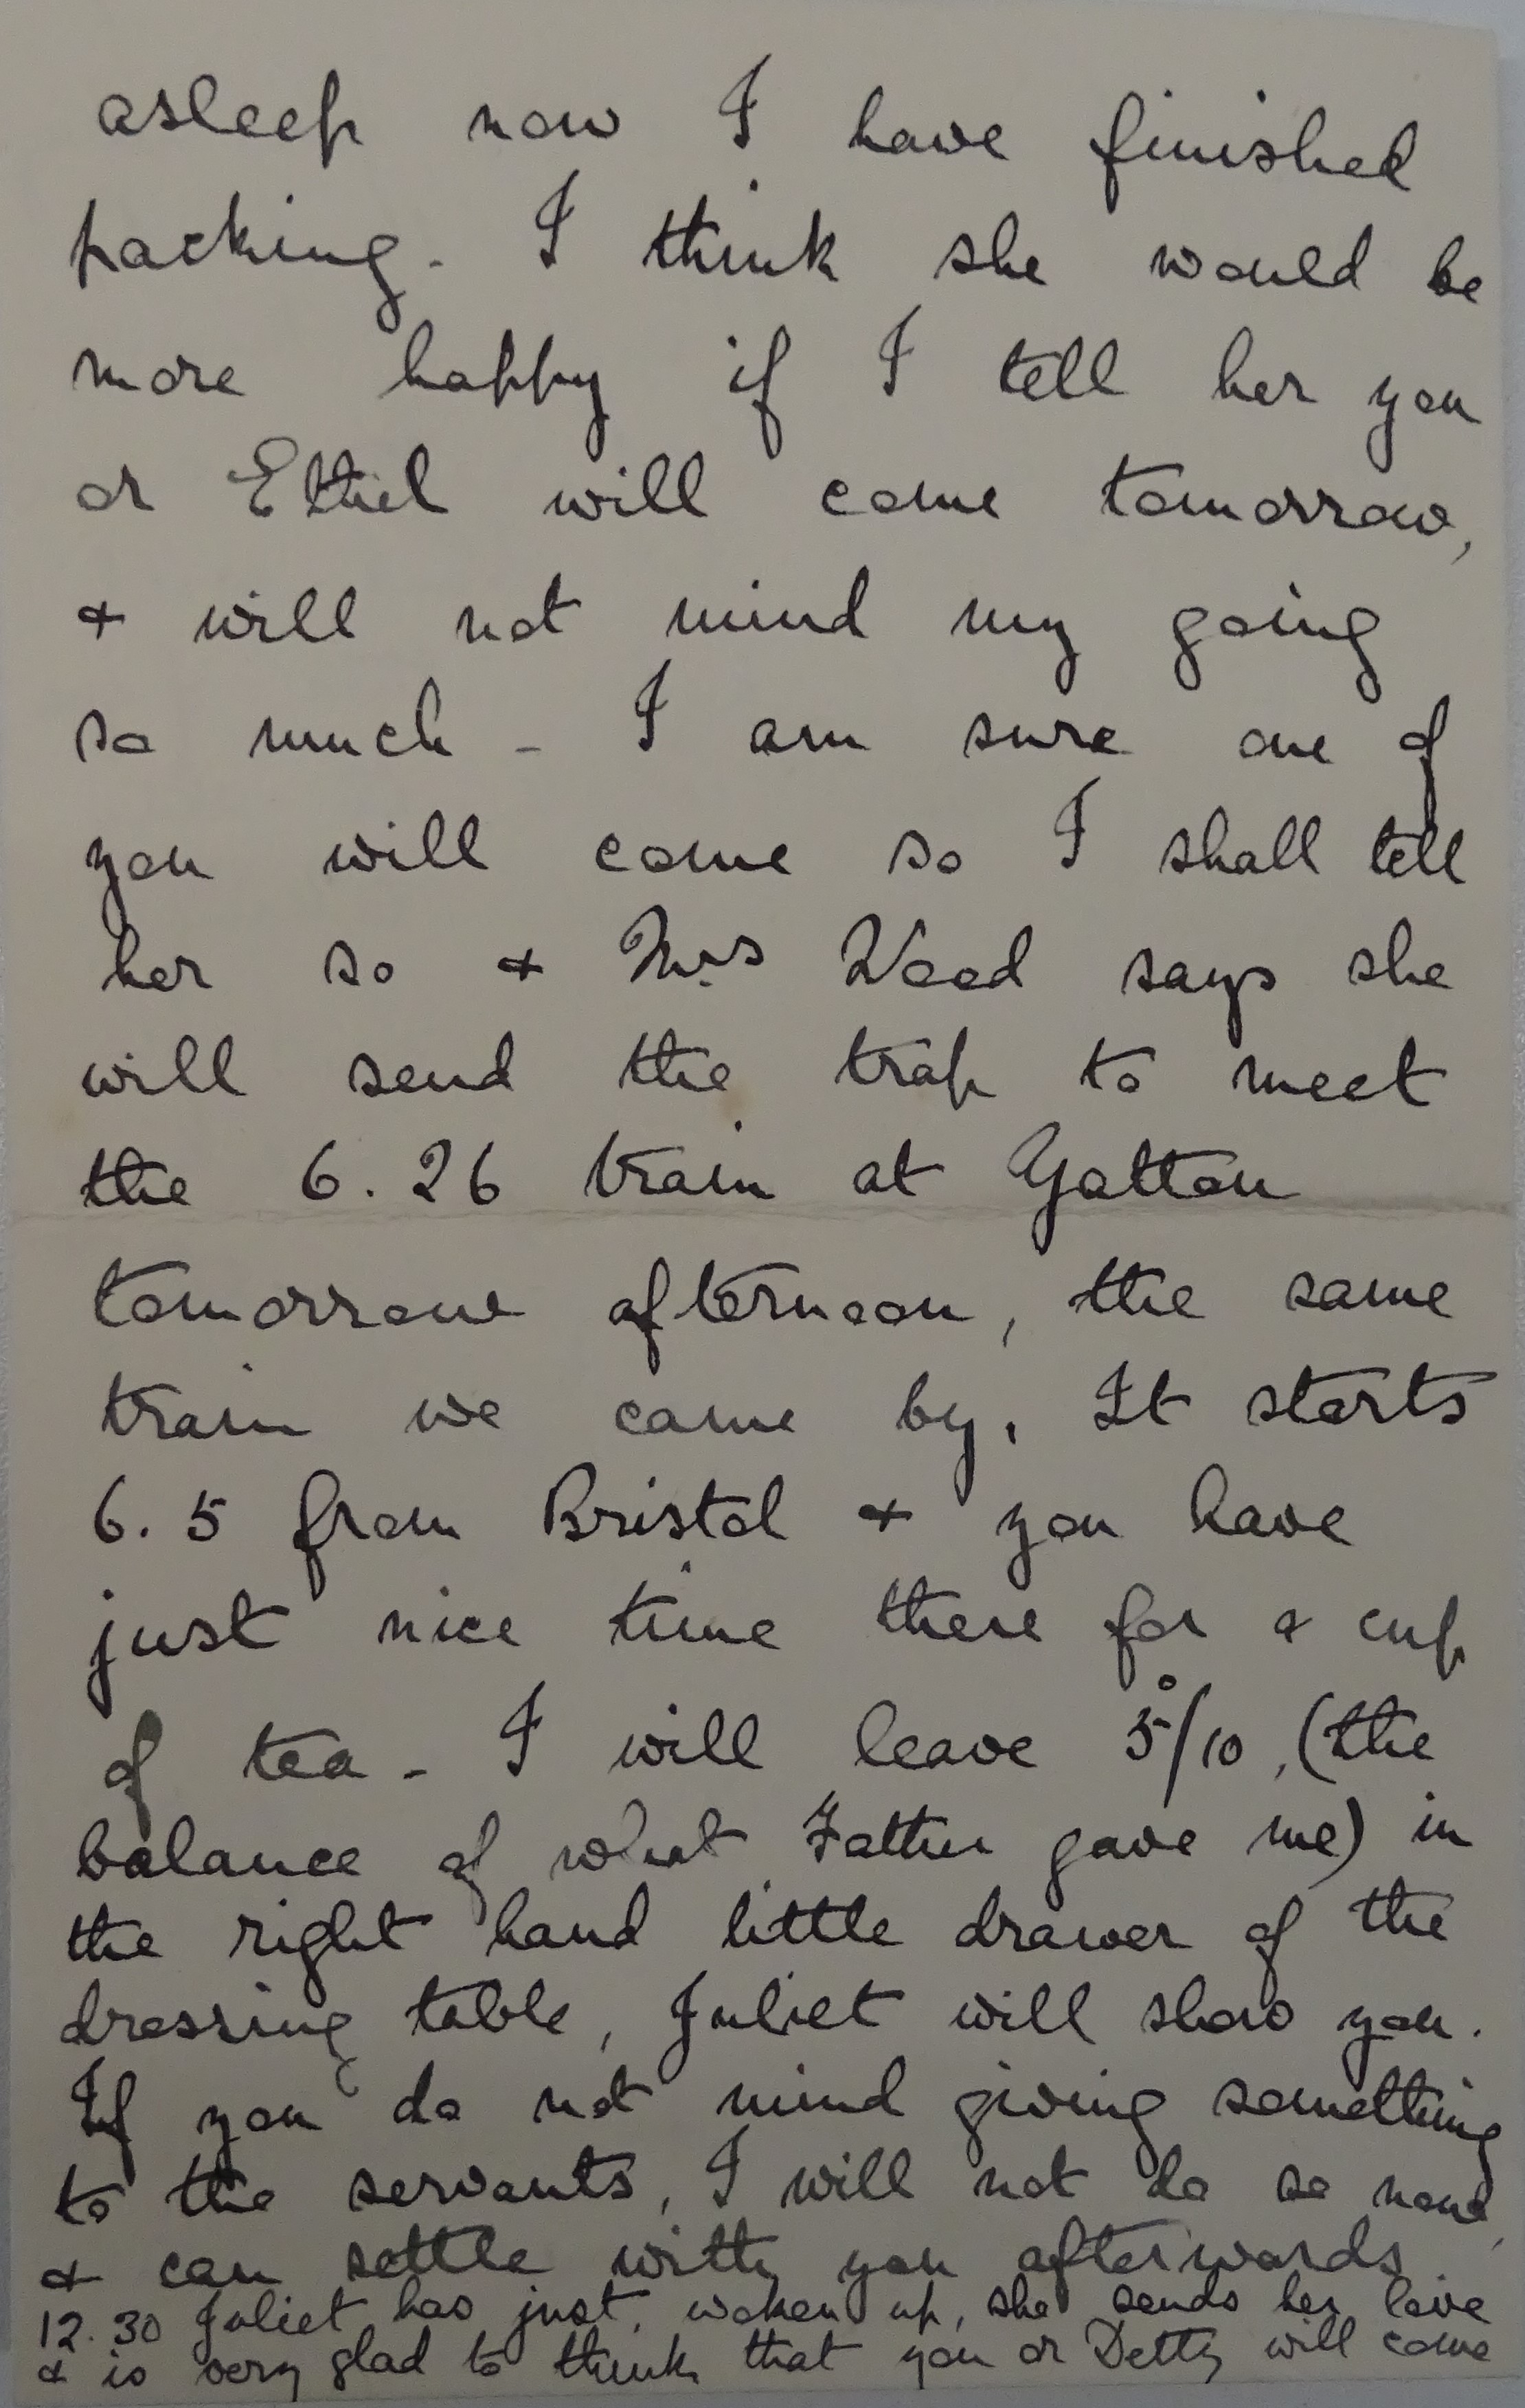 asleep now I have finished
packing. I think she would be
more happy if I tell her you
or Ethel will come tomorrow,
& will not mind my going
so much - I am sure one of
you will come so I shall tell
her so & Mrs Wood says she
will send the trap to meet
the 6.26 train at Yatton
tomorrow afternoon, the same
train we came by. It starts
6.5 from Bristol & you have
just nice time there for a cup
of tea - I will leave 5/10, (the
balance of what Father gave me) in
the right hand little drawer of the
dressing table, Juliet will show you.
If you do not mind giving something
to the servants, I will not do so now,
& can settle with you afterwards
12.30 Juliet has just woken up, she sends her love
& is very glad to think that you or Detty will come